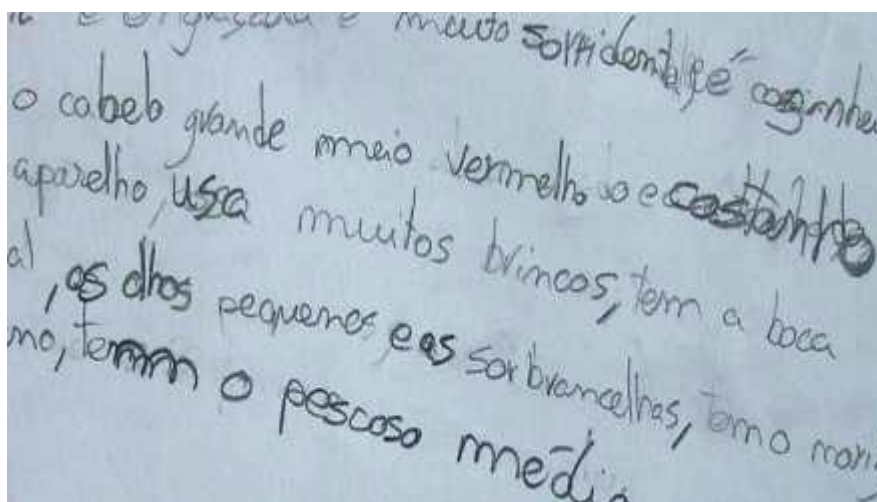 e engraçada e muito sorridente, é cozinhei
o cabelo grande meio vermelho so e castanho
aparelho, usa muitos brincos, tem a boca
al, os olhos pequenos, e as sorbrancelhas, tem o nari
no, temm o pescoso médio